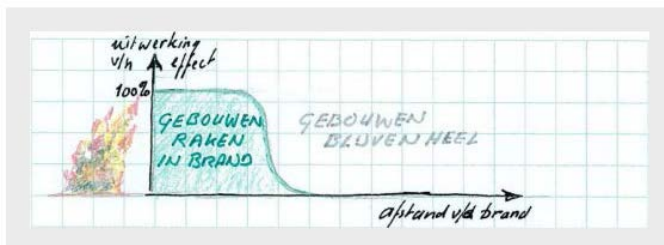 uitwerking
v/h effect
100%
GEBOUWEN
RAKEN
IN BRAND
GEBOUWEN
BLIJVEN HEEL
afstand v/d brand